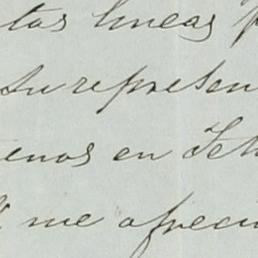 tas lineas p
su represen
enos en Feb
me ofreci